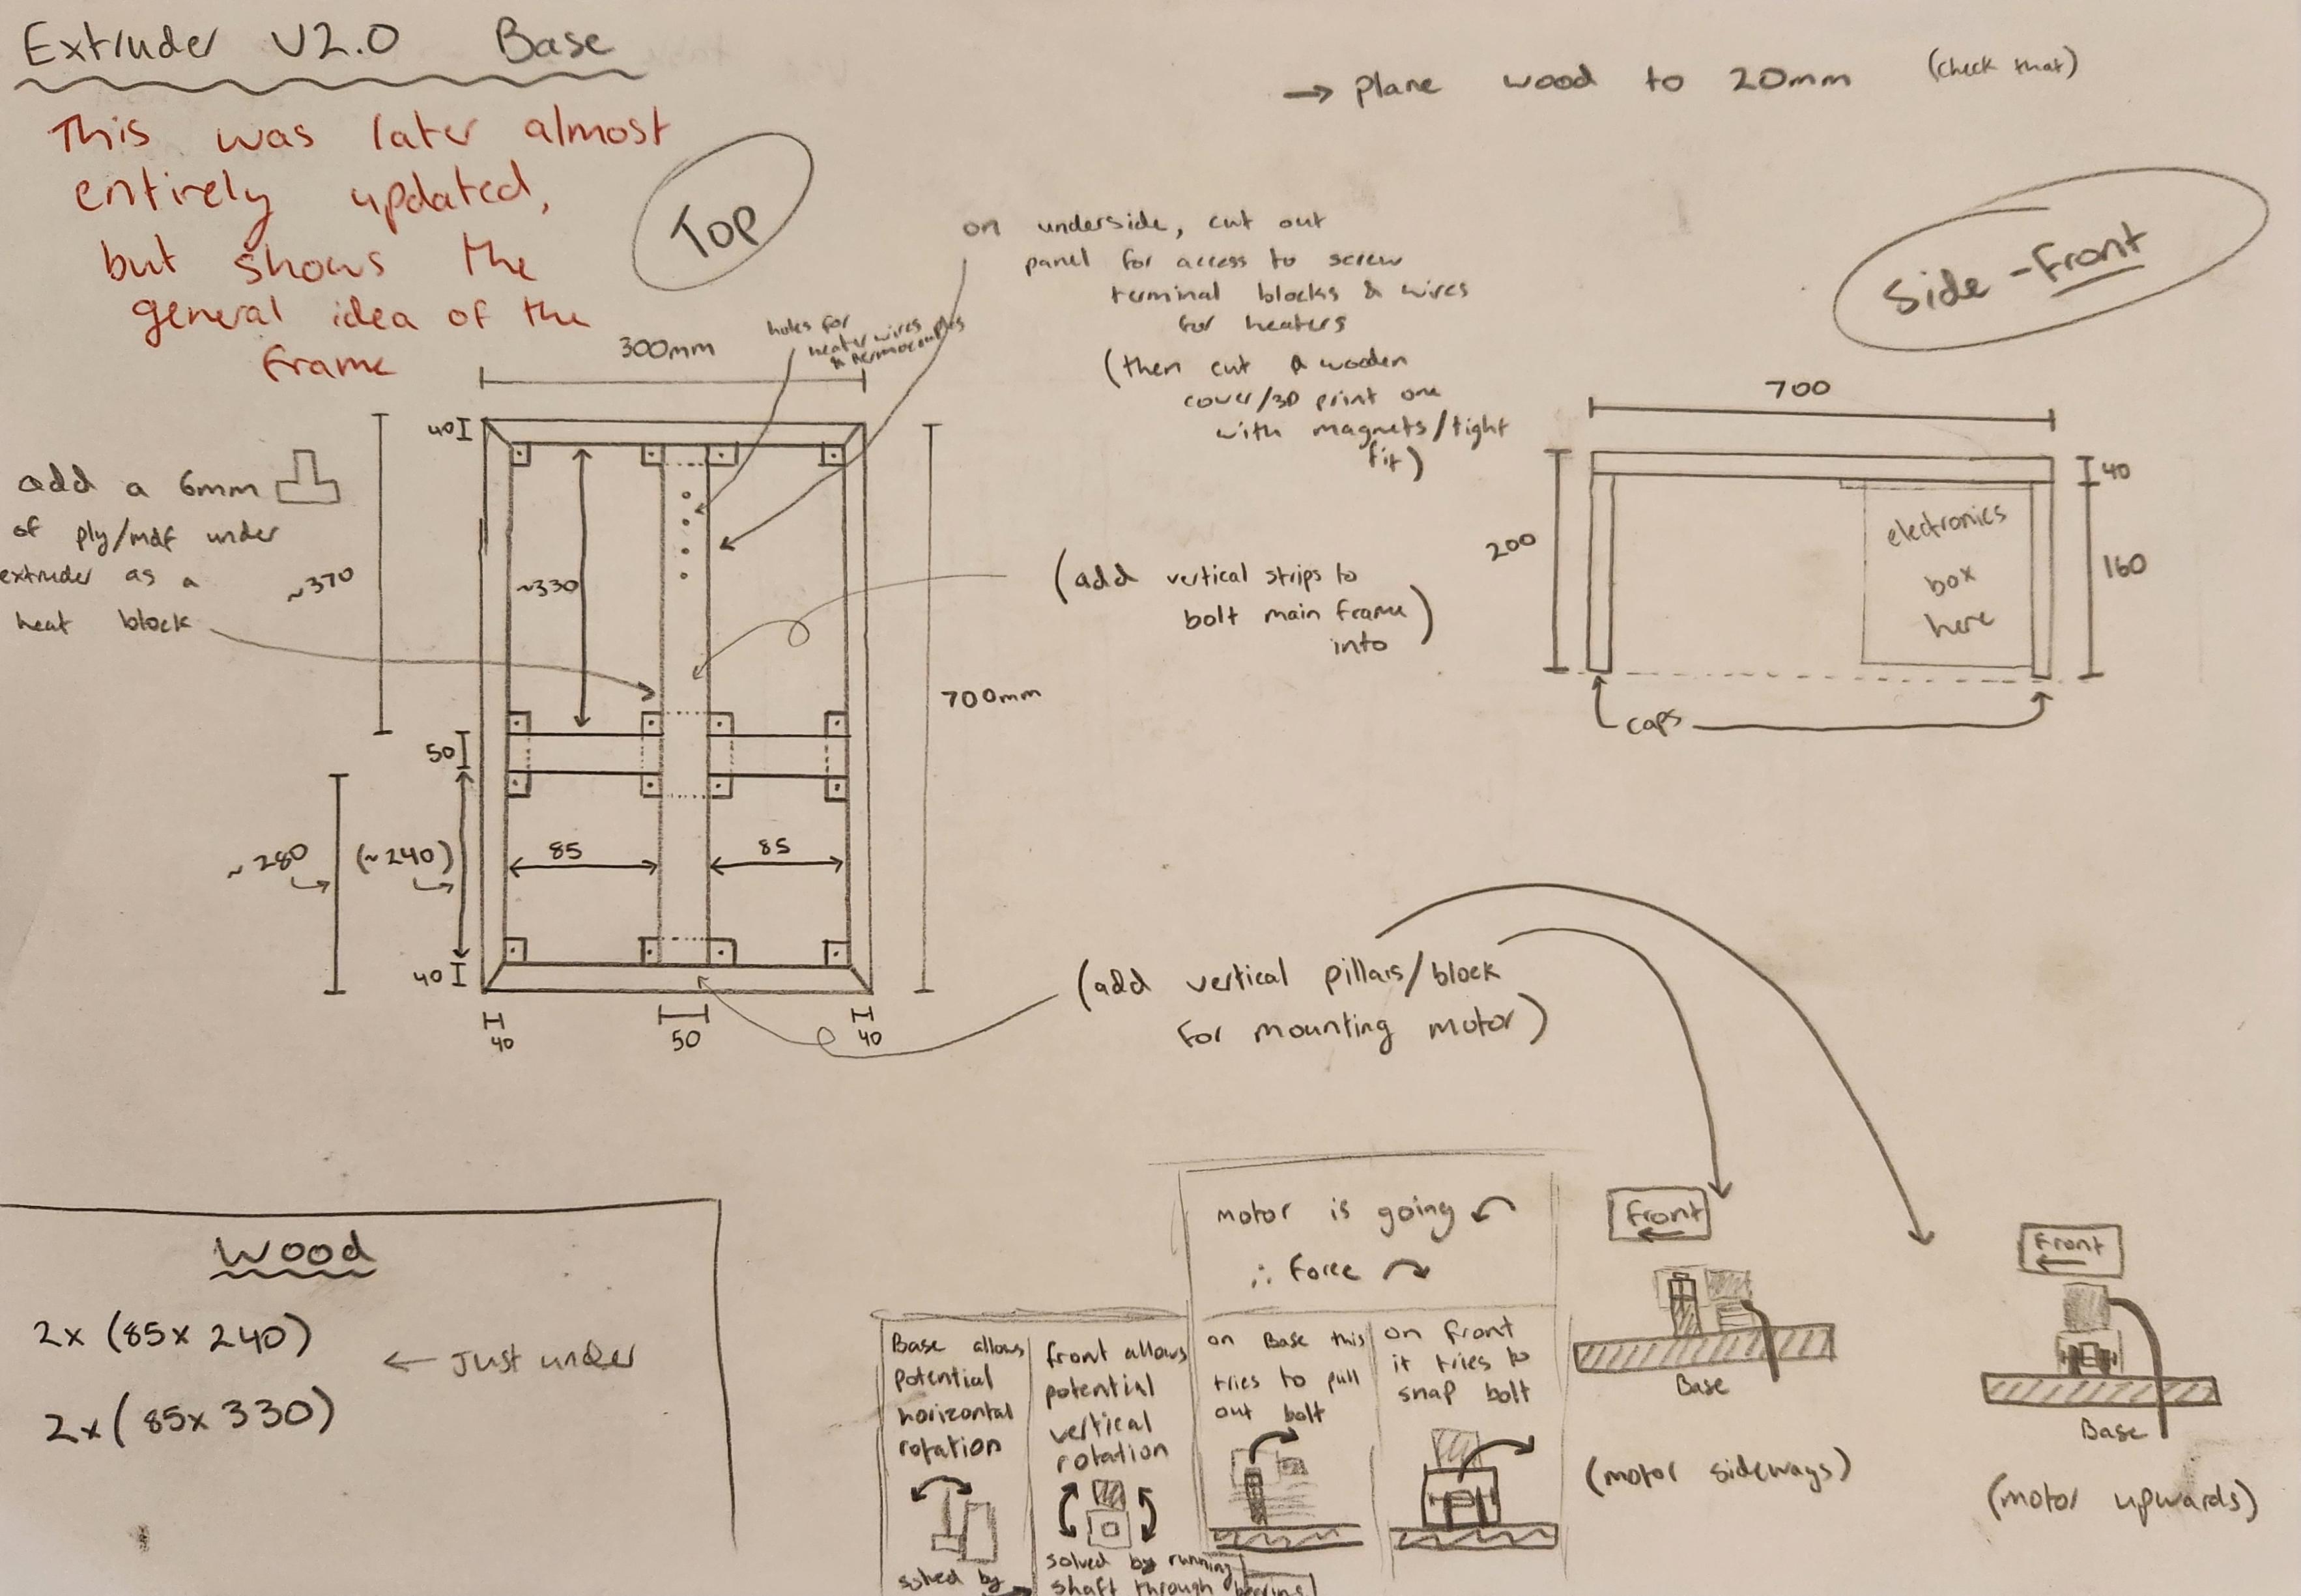 Extruder V2.0 Base
This was later almost
entirely updated,
but shows the
general idea of the
frame
→ plane wood to 20mm (check that)
Top
Side-Front
on underside, cut out
panel for access to screw
terminal blocks & wires
for heaters
(then cut a wooden
cover/3D print one
with magnets/tight
fit)
holes for
heater wires
& thermocouples
300mm
40
add a 6mm
of ply/mdf under
extruder as a
heat block
~370
~330
700mm
50
~280
(~240)
85
85
40
40
50
40
(add vertical strips to
bolt main frame
into)
(add vertical pillars/block
for mounting motor)
700
200
40
160
electronics
box
here
caps
Wood
2x (85x 240)
2x (85x 330)
← Just under
motor is going
∴ Force
Base allows
potential
horizontal
rotation
solved by
front allows
potential
vertical
rotation
solved by running
shaft through bearing
on Base this
tries to pull
out bolt
on front
it tries to
snap bolt
Front
←
Base
(motor sideways)
Front
←
Base
(motor upwards)